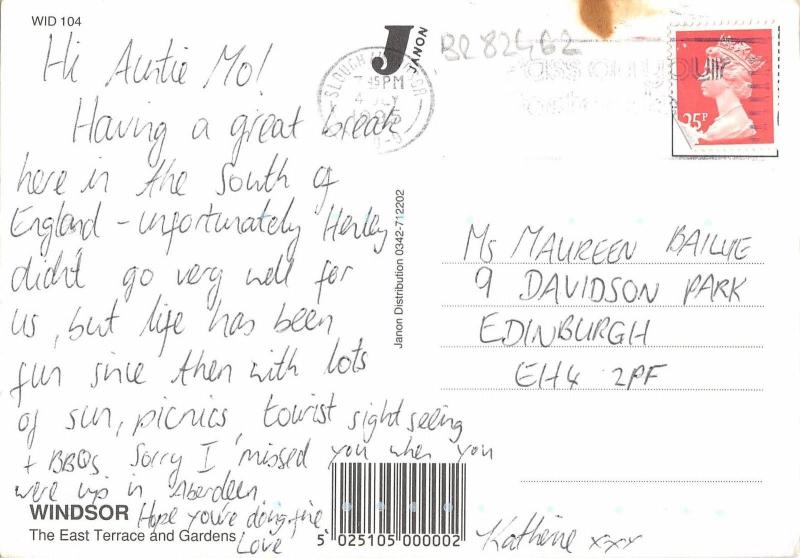 WID 104
Hi Auntie Mo!
Having a great break
here in the South of
England - unfortunately Henley
didn't go very well for
us, but life has been
fun since then with lots
of sun, picnics, tourist sight seeing
+ BBQs Sorry I missed you when you
were up in Aberdeen.
Hope you're doing fine
Love
Katherine xxx
J
JANON
BR82462
SLOUGH
45PM
4 JLY
25P
Janon Distribution 0342-712202
Ms MAUREEN BAILLIE
9 DAVIDSON PARK
EDINBURGH
EH4 2PF
WINDSOR
The East Terrace and Gardens
5 025105 000002